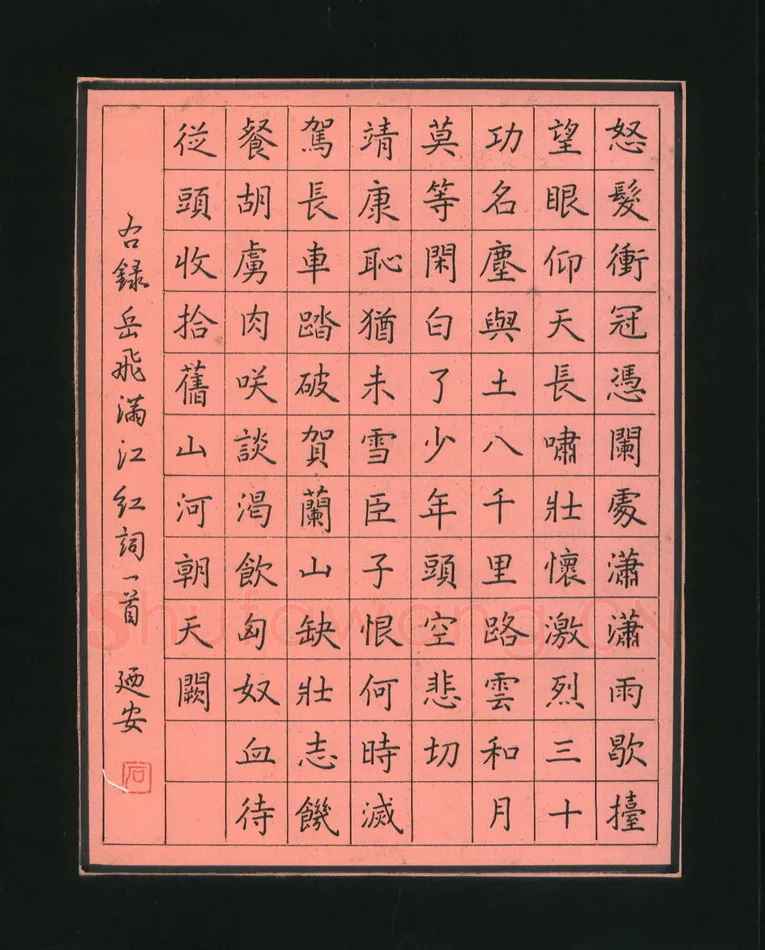 怒髮衝冠憑闌處瀟瀟雨歇擡
望眼仰天長嘯壯懷激烈三十
功名塵與土八千里路雲和月
莫等閑白了少年頭空悲切
靖康恥猶未雪臣子恨何時滅
駕長車踏破賀蘭山缺壯志饑
餐胡虜肉咲談渴飲匈奴血待
從頭收拾舊山河朝天闕
右錄岳飛滿江紅詞一首 廼安
石
Shufawang.CN